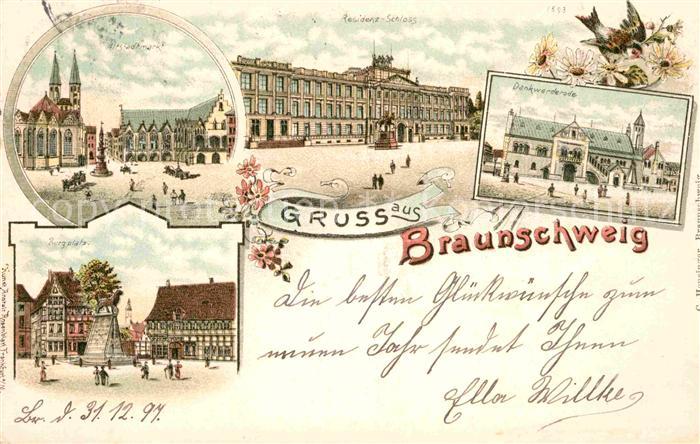 Altstadtmarkt
Residenz-Schloss
1593
Dankwarderode
GRUSS aus
Braunschweig
Burgplatz.
Die besten Glückwünsche zum
neuen Jahr sendet Ihnen
Ella Willke
Br. d. 31. 12. 97.